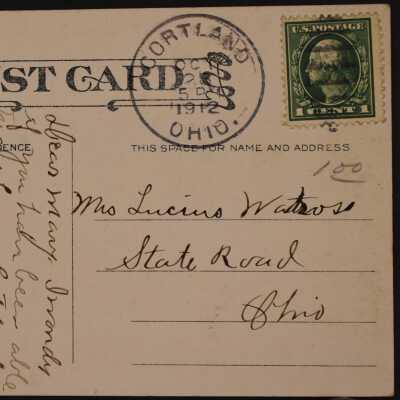 ST CARD
CORTLAND
OCT
2
5 P
1912
OHIO.
U.S. POSTAGE
1 CENT 1
ENCE
THIS SPACE FOR NAME AND ADDRESS
1 00
Mrs Lucius Watrose
State Road
Ohio
Dear Mary I wonder
if you have been able